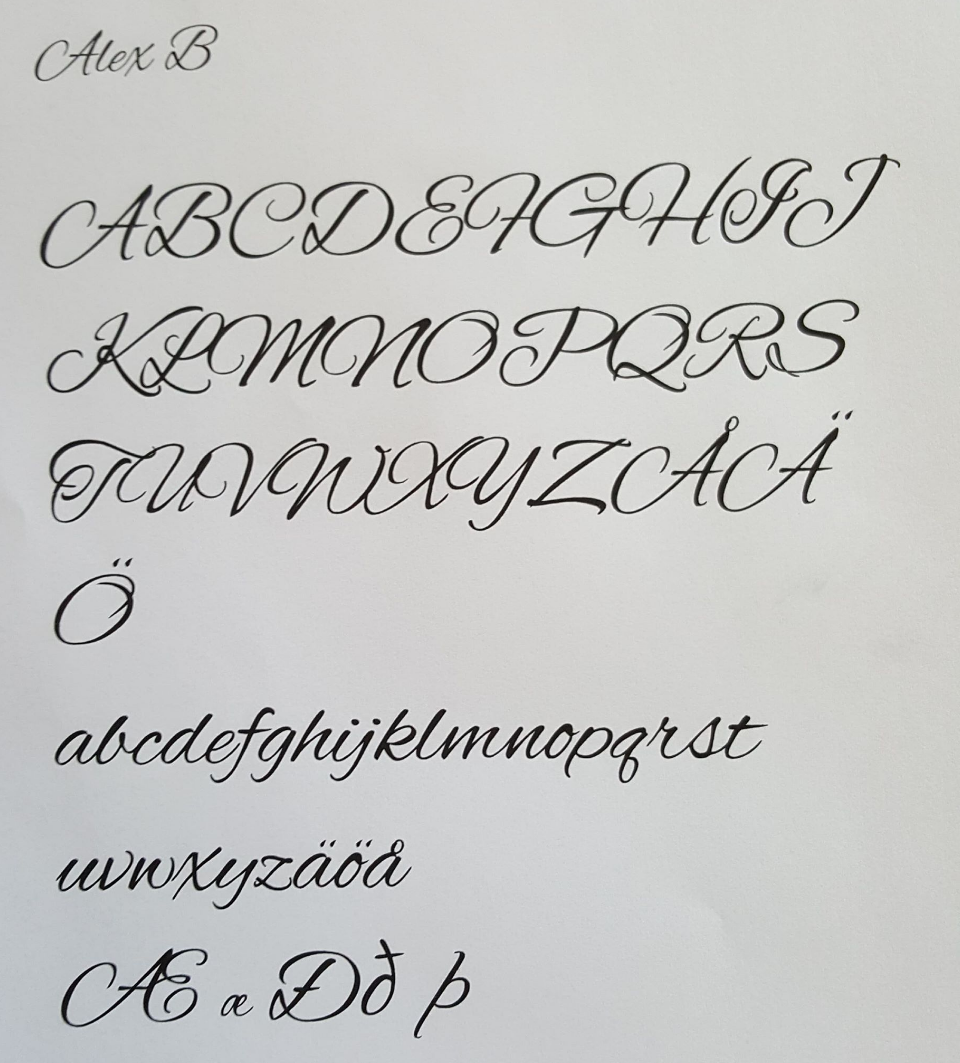 Alex B
ABCDEFGHIJ
KLMNOPQRS
TUVWXYZÅÄ
Ö
abcdefghijklmnopqrst
uvwxyzäöå
Æ æ Ðð þ